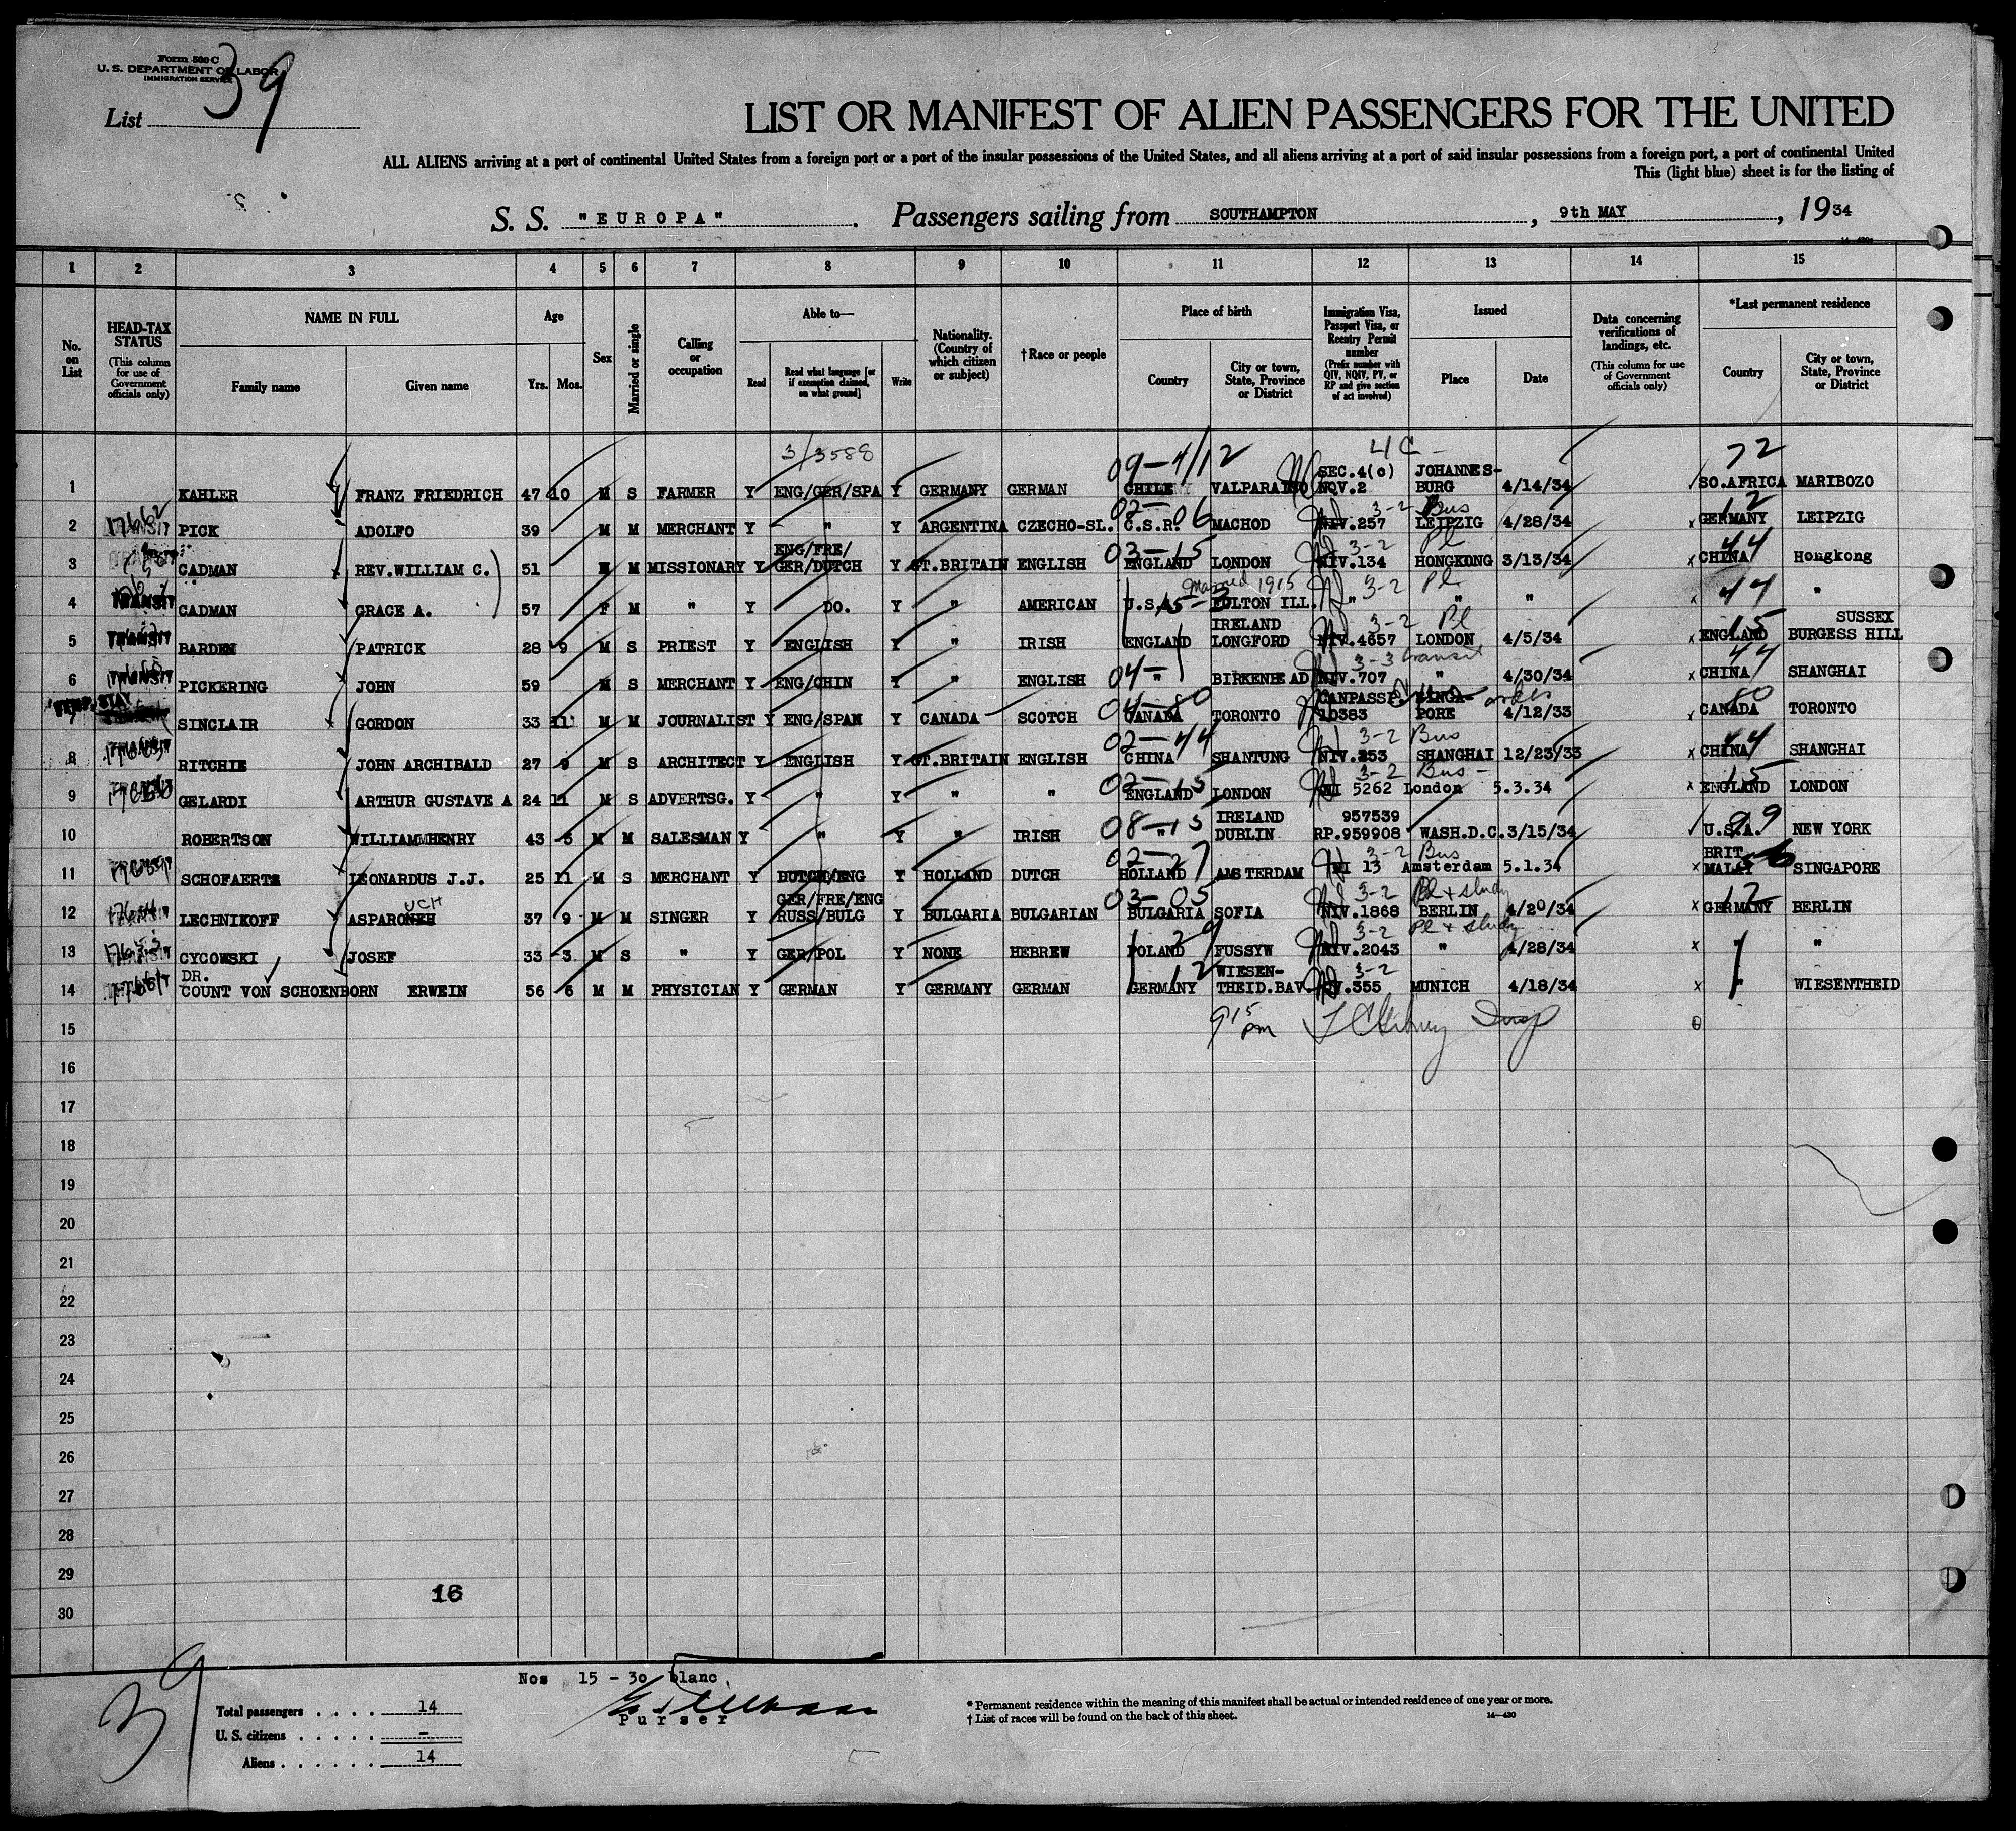 Form 500 C
U. S. DEPARTMENT OF LABOR
IMMIGRATION SERVICE
List 39
LIST OR MANIFEST OF ALIEN PASSENGERS FOR THE UNITED
ALL ALIENS arriving at a port of continental United States from a foreign port or a port of the insular possessions of the United States, and all aliens arriving at a port of said insular possessions from a foreign port, a port of continental United
This (light blue) sheet is for the listing of
S. S. "EUROPA". Passengers sailing from SOUTHAMPTON, 9th MAY, 1934
1 2 3 4 5 6 7 8 9 10 11 12 13 14 15
No. on List
HEAD-TAX STATUS (This column for use of Government officials only)
NAME IN FULL Family name Given name
Age Yrs. Mos.
Sex
Married or single
Calling or occupation
Able to— Read Read what language [or if exemption claimed, on what ground] Write
Nationality. (Country of which citizen or subject)
†Race or people
Place of birth Country City or town, State, Province or District
Immigration Visa, Passport Visa, or Reentry Permit number (Prefix number with QIV, NQIV, PV, or RP and give section of act involved)
Issued Place Date
Data concerning verifications of landings, etc. (This column for use of Government officials only)
*Last permanent residence Country City or town, State, Province or District
3/3588 09-4/12 4C- 72
SEC.4(c) JOHANNES-
1 KAHLER FRANZ FRIEDRICH 47 10 M S FARMER Y ENG/GER/SPA Y GERMANY GERMAN CHILE VALPARAISO NQV.2 BURG 4/14/34 SO.AFRICA MARIBOZO
02-06 3-2 Bus 12
2 PICK ADOLFO 39 M M MERCHANT Y " Y ARGENTINA CZECHO-SL. C.S.R. MACHOD NIV.257 LEIPZIG 4/28/34 x GERMANY LEIPZIG
ENG/FRE/ 03-15 3-2 Pl 44
3 CADMAN REV.WILLIAM C. 51 M M MISSIONARY Y GER/DUTCH Y GT.BRITAIN ENGLISH ENGLAND LONDON NIV.134 HONGKONG 3/13/34 x CHINA Hongkong
Married 1915 3-2 Pl 44
4 TRANSIT CADMAN GRACE A. 57 F M " Y DO. Y " AMERICAN U.S.A. FULTON ILL. " " " x "
IRELAND 3-2 Pl 15 SUSSEX
5 TRANSIT BARDEN PATRICK 28 9 M S PRIEST Y ENGLISH Y " IRISH ENGLAND LONGFORD NIV.4657 LONDON 4/5/34 x ENGLAND BURGESS HILL
04- 3-3 transit 44
6 PICKERING JOHN 59 M S MERCHANT Y ENG/CHIN Y " ENGLISH " BIRKENHEAD NIV.707 " 4/30/34 x CHINA SHANGHAI
TEMP. STAY 04-80 CANPASSP. SINGA- 80
7 SINCLAIR GORDON 33 11 M M JOURNALIST Y ENG/SPAN Y CANADA SCOTCH CANADA TORONTO 10383 PORE 4/12/33 x CANADA TORONTO
02-44 3-2 Bus 44
8 RITCHIE JOHN ARCHIBALD 27 9 M S ARCHITECT Y ENGLISH Y GT.BRITAIN ENGLISH CHINA SHANTUNG NIV.253 SHANGHAI 12/23/33 x CHINA SHANGHAI
02-15 3-2 Bus- 15
9 GELARDI ARTHUR GUSTAVE A 24 11 M S ADVERTSG. Y " Y " " ENGLAND LONDON NI 5262 London 5.3.34 x ENGLAND LONDON
08-15 IRELAND 957539 99
10 ROBERTSON WILLIAM HENRY 43 5 M M SALESMAN Y " Y " IRISH " DUBLIN RP.959908 WASH.D.C. 3/15/34 U.S.A. NEW YORK
02-27 3-2 Bus BRIT. 56
11 SCHOFAERTS LEONARDUS J.J. 25 11 M S MERCHANT Y DUTCH/ENG Y HOLLAND DUTCH HOLLAND AMSTERDAM NI 13 Amsterdam 5.1.34 x MALAY SINGAPORE
UCH GER/FRE/ENG 03-05 3-2 Pl + study 12
12 LECHNIKOFF ASPARONEH 37 9 M M SINGER Y RUSS/BULG Y BULGARIA BULGARIAN BULGARIA SOFIA NIV.1868 BERLIN 4/20/34 x GERMANY BERLIN
29 3-2 Pl + study
13 CYCOWSKI JOSEF 33 3 M S " Y GER/POL Y NONE HEBREW POLAND FUSSYW NIV.2043 " 4/28/34 x " "
DR. 12 WIESEN- 3-2
14 COUNT VON SCHOENBORN ERWEIN 56 6 M M PHYSICIAN Y GERMAN Y GERMANY GERMAN GERMANY THEID.BAV. QV.355 MUNICH 4/18/34 x " WIESENTHEID
15 9 15 pm Insp
16
17
18
19
20
21
22
23
24
25
26
27
28
29
16
30
39
Nos 15 - 30 blanc
Purser
Total passengers . . . . 14
U. S. citizens . . . . . -
Aliens . . . . . . 14
* Permanent residence within the meaning of this manifest shall be actual or intended residence of one year or more.
† List of races will be found on the back of this sheet.
14—420